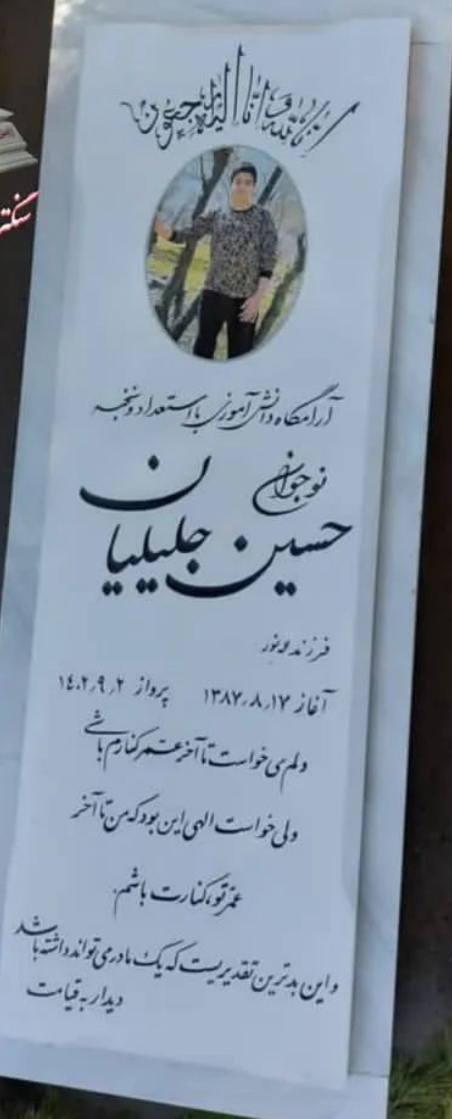 إنا لله و إنا إلیه راجعون
آرامگاه دانش‌آموزی با استعداد و نخبه
نوجوان
حسین جلیلیان
فرزند
آغاز ۱۳۸۷٫۸٫۱۷ پرواز ۱۴۰۲٫۹٫۲
دلم می خواست تا آخر عمر کنارم باشی
ولی خواست الهی این بود که من تا آخر
عمر تو، کنارت باشم.
و این بدترین تقدیریست که یک مادر می تواند داشته باشد
دیدار به قیامت